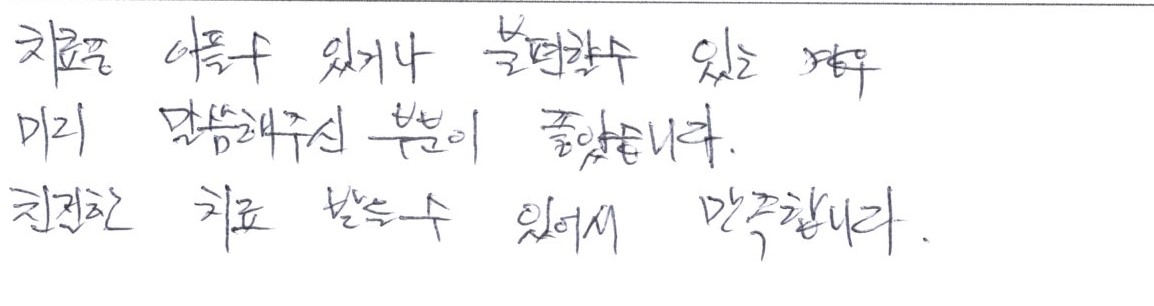 치료중 아플수 있거나 불편할수 있는 경우
미리 말씀해주신 부분이 좋았습니다.
친절한 치료 받을수 있어서 만족합니다.